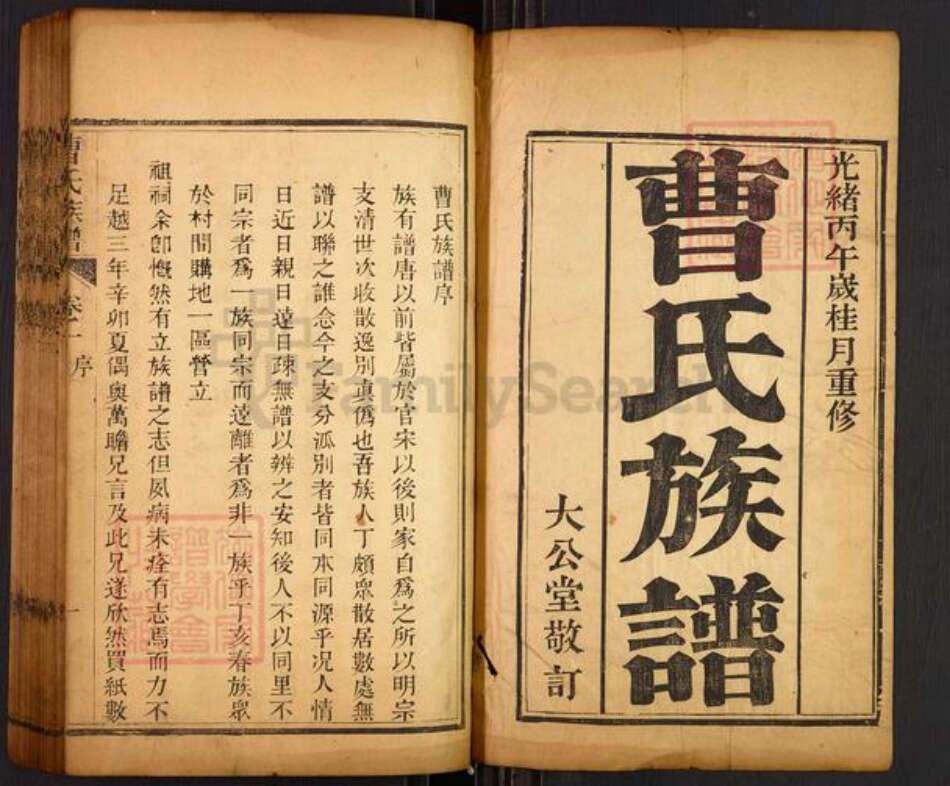 光緒丙午歲桂月重修
曹氏族譜
大公堂敬訂
曹氏族譜序
族有譜唐以前皆屬於官宋以後則家自爲之所以明宗
支清世次收散逸別真僞也吾族人丁頗衆散居數處無
譜以聯之誰念今之支分派別者皆同本同源乎况人情
日近日親日遠日疎無譜以辨之安知後人不以同里不
同宗者爲一族同宗而遠離者爲非一族乎丁亥春族衆
於村間購地一區營立
祖祠余卽慨然有立族譜之志但夙病未痊有志焉而力不
足越三年辛卯夏偶與萬瞻兄言及此兄遂欣然買紙數
曹氏族譜
序
一
FamilySearch